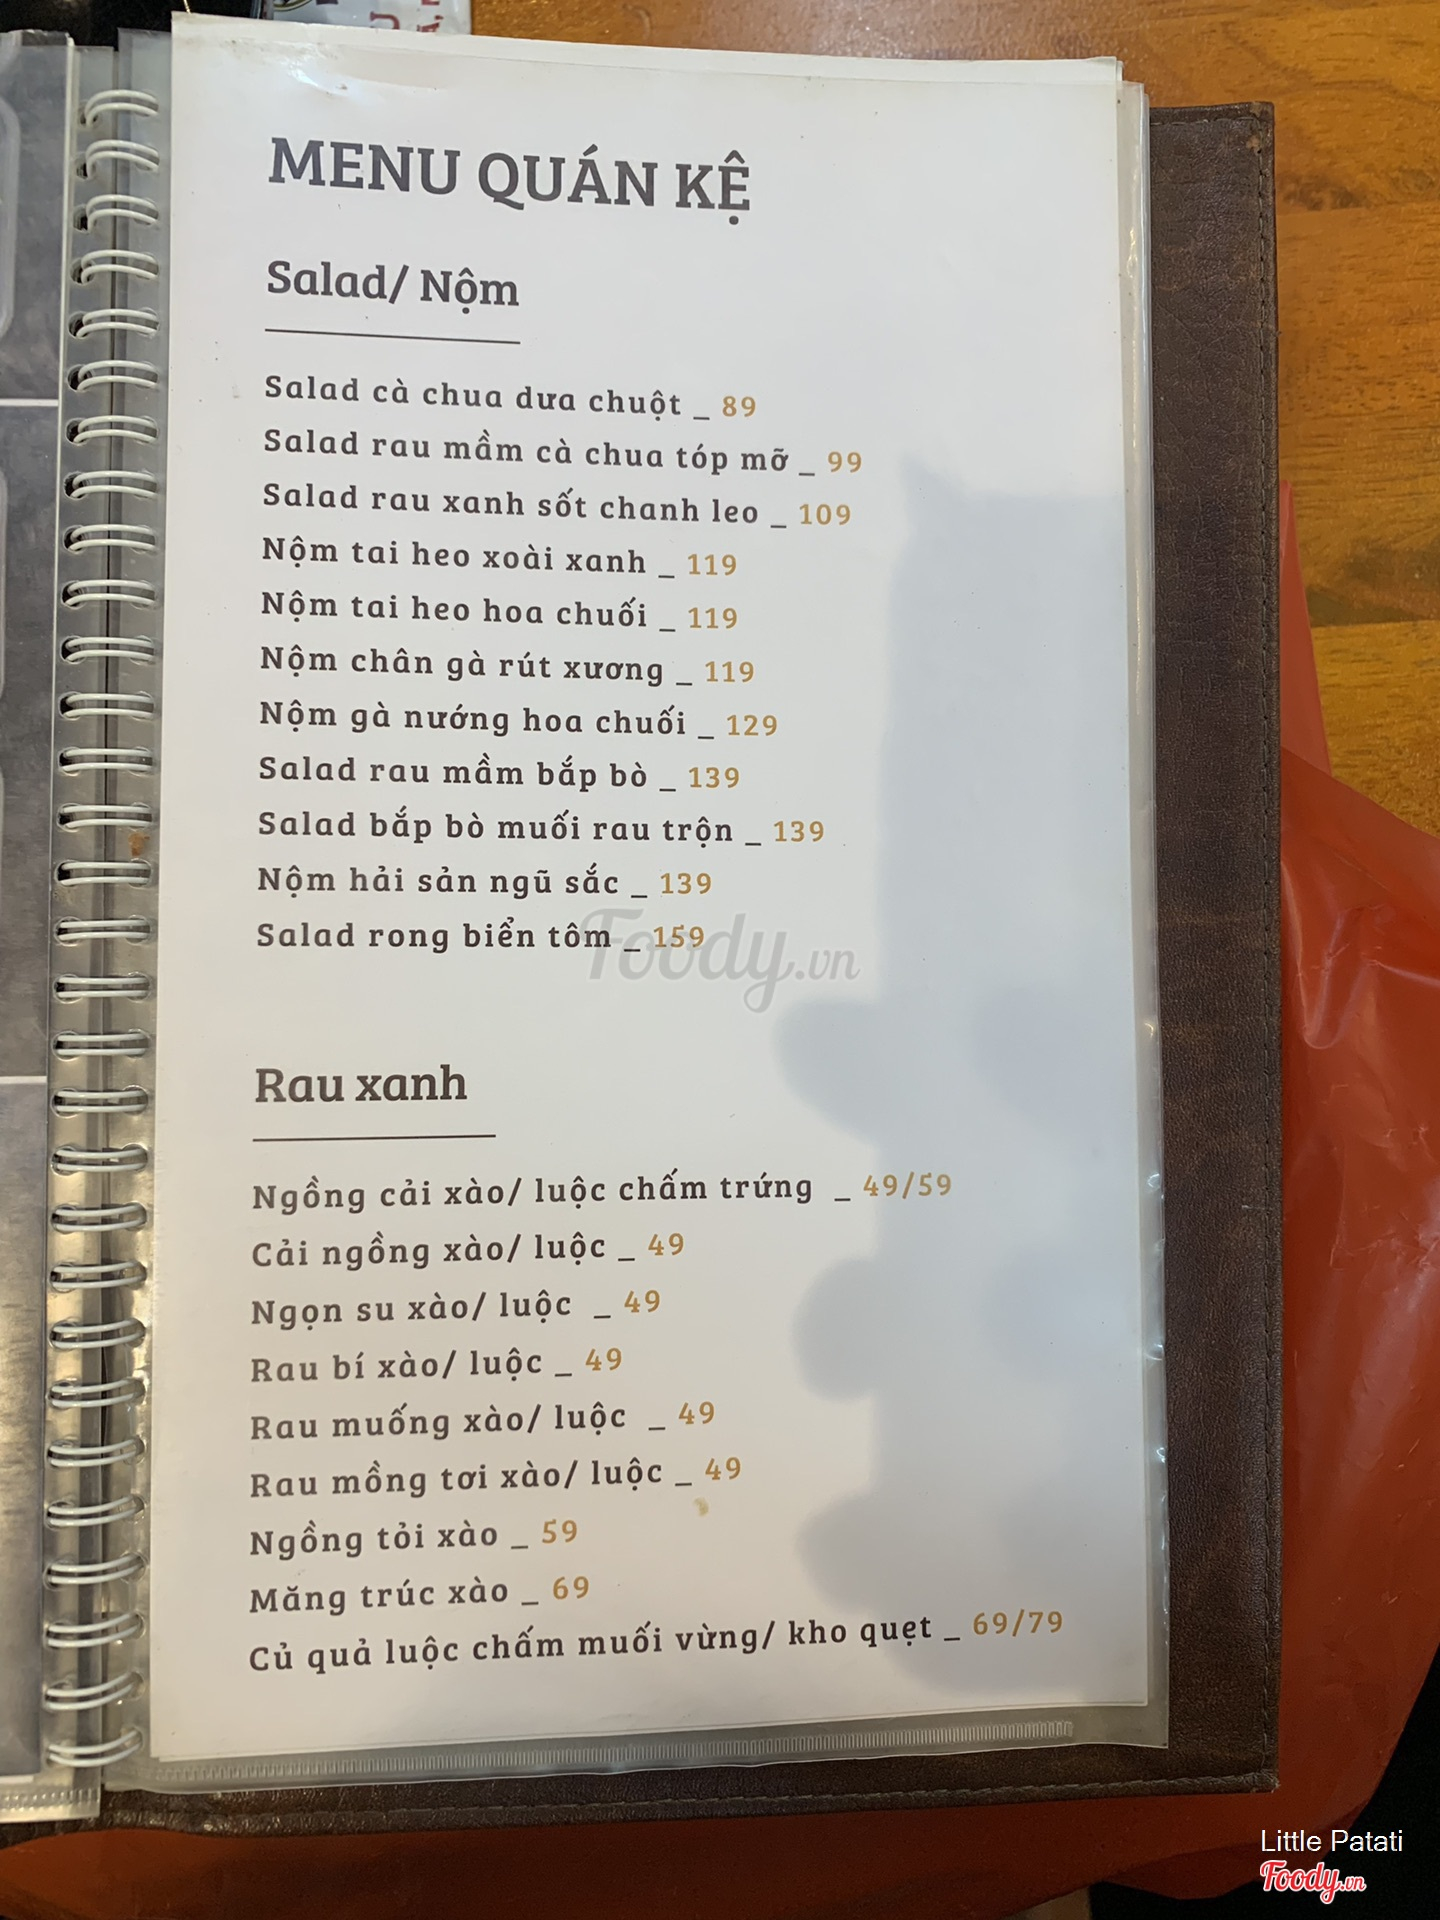 MENU QUÁN KỆ
Salad/ Nộm
Salad cà chua dưa chuột _ 89
Salad rau mầm cà chua tóp mỡ _ 99
Salad rau xanh sốt chanh leo _ 109
Nộm tai heo xoài xanh _ 119
Nộm tai heo hoa chuối _ 119
Nộm chân gà rút xương _ 119
Nộm gà nướng hoa chuối _ 129
Salad rau mầm bắp bò _ 139
Salad bắp bò muối rau trộn _ 139
Nộm hải sản ngũ sắc _ 139
Salad rong biển tôm _ 159
Foody.vn
Rau xanh
Ngồng cải xào/ luộc chấm trứng _ 49/59
Cải ngồng xào/ luộc _ 49
Ngọn su xào/ luộc _ 49
Rau bí xào/ luộc _ 49
Rau muống xào/ luộc _ 49
Rau mồng tơi xào/ luộc _ 49
Ngồng tỏi xào _ 59
Măng trúc xào _ 69
Củ quả luộc chấm muối vừng/ kho quẹt _ 69/79
Little Patati
Foody.vn